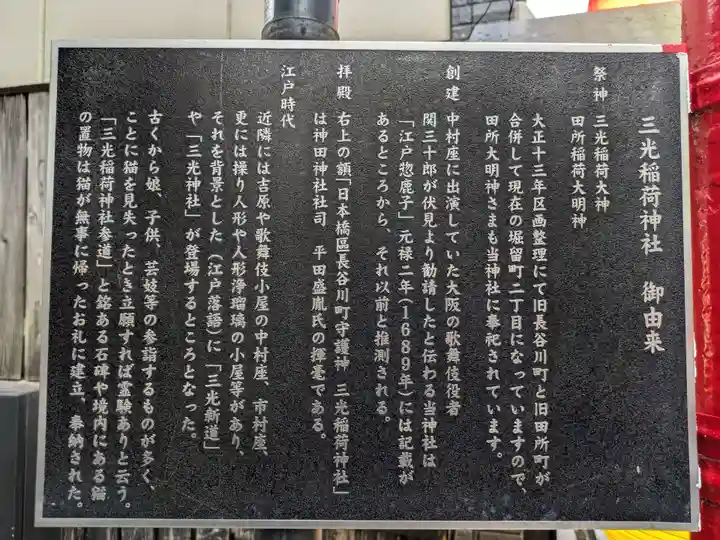 三光稲荷神社 御由来
祭神 三光稲荷大神
田所稲荷大明神
大正十三年区画整理にて旧長谷川町と旧田所町が
合併して現在の堀留町二丁目になっていますので、
田所大明神さまも当神社に奉祀されています。
創建 中村座に出演していた大阪の歌舞伎役者
関三十郎が伏見より勧請したと伝わる当神社は
「江戸惣鹿子」元禄二年(1689年)には記載が
あるところから、それ以前と推測される。
拝殿 右上の額「日本橋區長谷川町守護神 三光稲荷神社」
は神田神社社司 平田盛胤氏の揮毫である。
江戸時代
近隣には吉原や歌舞伎小屋の中村座、市村座、
更には操り人形や人形浄瑠璃の小屋等があり、
それを背景とした(江戸落語)に「三光新道」
や「三光神社」が登場するところとなった。
古くから娘、子供、芸妓等の参詣するものが多く、
ことに猫を見失ったとき立願すれば霊験ありと云う。
「三光稲荷神社参道」と銘ある石碑や境内にある猫
の置物は猫が無事に帰ったお礼に建立、奉納された。